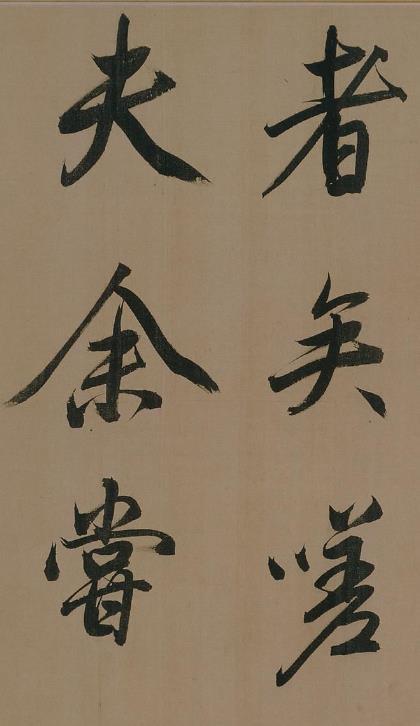 者矣嗟
夫余嘗